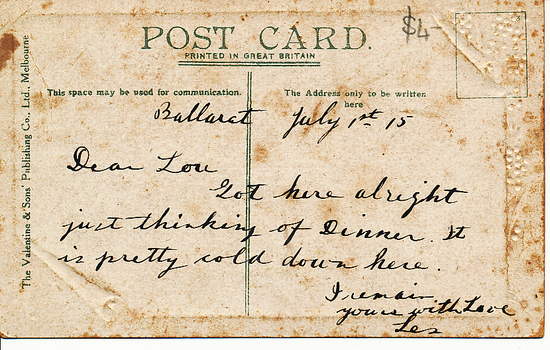 $4-
POST CARD.
PRINTED IN GREAT BRITAIN
The Valentine & Sons' Publishing Co., Ltd., Melbourne
This space may be used for communication.
The Address only to be written
here
Ballarat July 1st 15
Dear Lou
Got here alright
just thinking of Dinner. It
is pretty cold down here.
I remain
yours with Love
Les